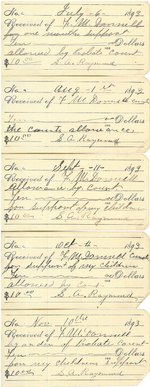 No. July - 6 - 1893
Received of F. M. Donnell
for one months support
Ten Dollars
allowed by Probate Court
$10.00 S. A. Raymond
No. Aug - 1st 1893
Received of F. M. Donnell
Ten Dollars
the courts allowance
$10.00 S. A. Raymond
No. Sept - 11 - 1893
Received of F. M. Donnell
allowance by Court
Ten Dollars
for support of my children
$10.00 S. A. Raymond
No. Oct 6 1893
Received of F. M. Donnell
for support of my children
Ten Dollars
allowed by
$10.00 S. A. Raymond
No. Nov. 10th 1893
Received of F. M. Donnell
Guardian of Probate Court
Ten Dollars
for my childrens support
$10.00 S. A. Raymond